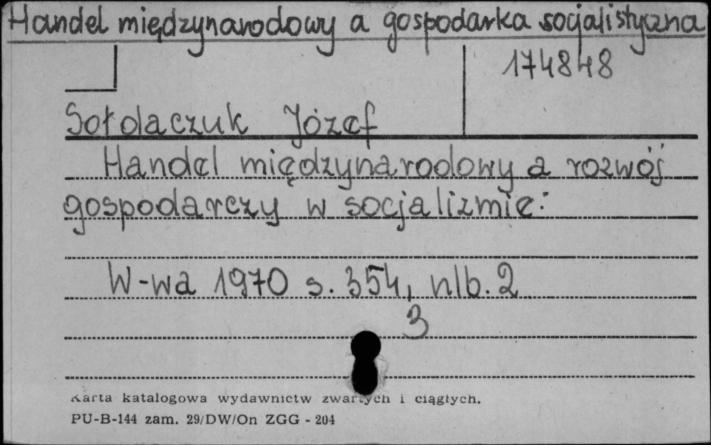 Handel międzynarodowy a gospodarka socjalistyczna
174848
Sołdaczuk Józef
Handel międzynarodowy a rozwój
gospodarczy w socjalizmie:
W-wa 1970 s. 354, nlb. 2
3
Karta katalogowa wydawnictw zwartych i ciągłych.
PU-B-144 zam. 29/DW/On ZGG - 204